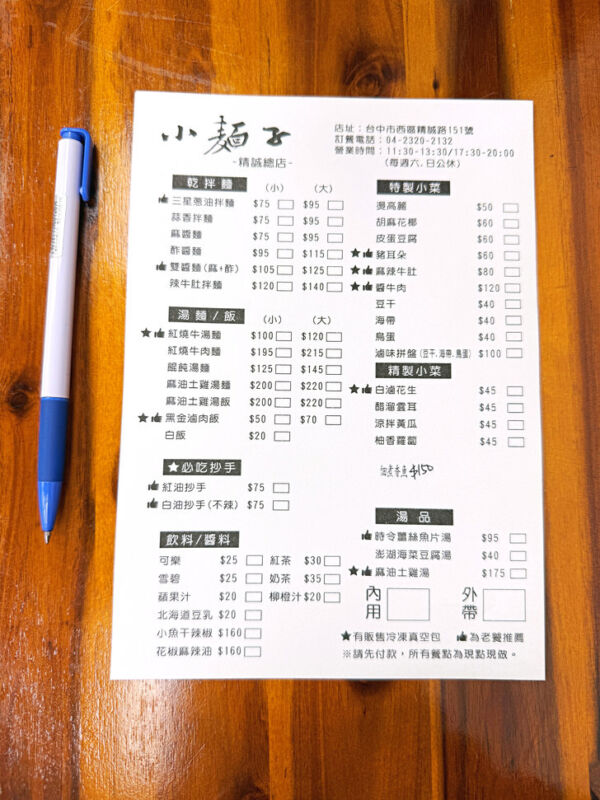 小麵子
-精誠總店-
店址：台中市西區精誠路151號
訂餐電話：04-2320-2132
營業時間：11:30-13:30/17:30-20:00
(每週六.日公休)
乾拌麵 (小) (大)
三星蔥油拌麵 $75 $95
蒜香拌麵 $75 $95
麻醬麵 $75 $95
酢醬麵 $95 $115
雙醬麵(麻+酢) $105 $125
辣牛肚拌麵 $120 $140
湯麵/飯 (小) (大)
★紅燒牛湯麵 $100 $120
紅燒牛肉麵 $195 $215
餛飩湯麵 $125 $145
麻油土雞湯麵 $200 $220
麻油土雞湯飯 $200 $220
★黑金滷肉飯 $50 $70
白飯 $20
★必吃抄手
紅油抄手 $75
白油抄手(不辣) $75
飲料/醬料
可樂 $25 紅茶 $30
雪碧 $25 奶茶 $35
蘋果汁 $20 柳橙汁 $20
北海道豆乳 $20
小魚干辣椒 $160
花椒麻辣油 $160
特製小菜
燙高麗 $50
胡麻花椰 $60
皮蛋豆腐 $60
★豬耳朵 $60
★麻辣牛肚 $80
★醬牛肉 $120
豆干 $40
海帶 $40
鳥蛋 $40
滷味拼盤(豆干.海帶.鳥蛋) $100
精製小菜
★白滷花生 $45
醋溜雲耳 $45
涼拌黃瓜 $45
柚香蘿蔔 $45
$150
湯品
時令薑絲魚片湯 $95
澎湖海菜豆腐湯 $40
★麻油土雞湯 $175
內用 外帶
★有販售冷凍真空包 為老饕推薦
※請先付款，所有餐點為現點現做。